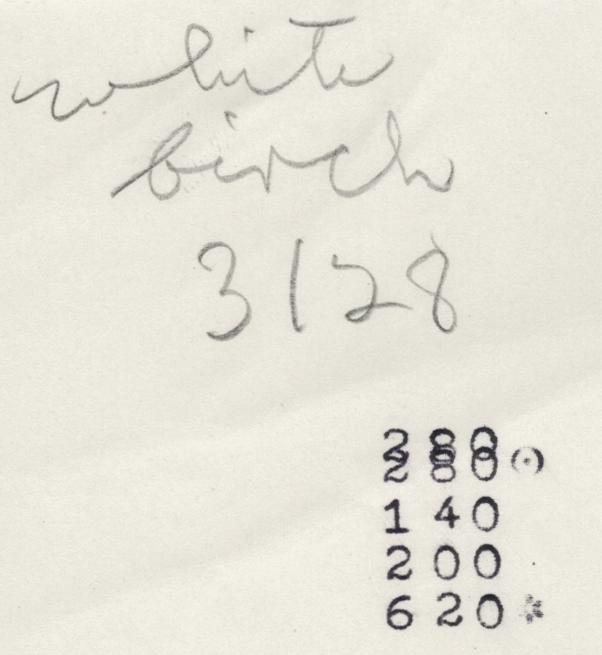 white
birch
3128
280
280
140
200
620 *